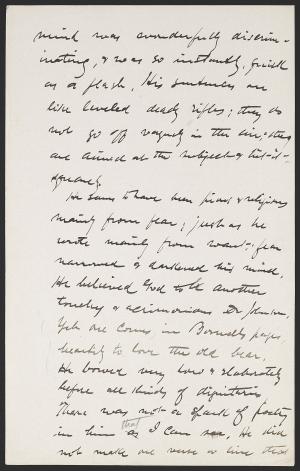 mind was wonderfully discrim-
inating, & was so instantly, quick
as a flash. His sentences are
like leveled deadly rifles; they do
not go off vaguely in the air; they
are aimed at the subject & hit it
squarely.
He seems to have been pious & religious
mainly from fear; just as he
wrote mainly from want; fear
narrowed & darkened his mind.
He believed God to be another
touchy & acrimonious Dr Johnson.
Yet one comes, in Boswells pages,
heartily to love the old bear.
He bowed very low & elaborately
before all kinds of dignitaries
There was not a spark of poetry
in him that as I can see. He did
not make one verse or line that